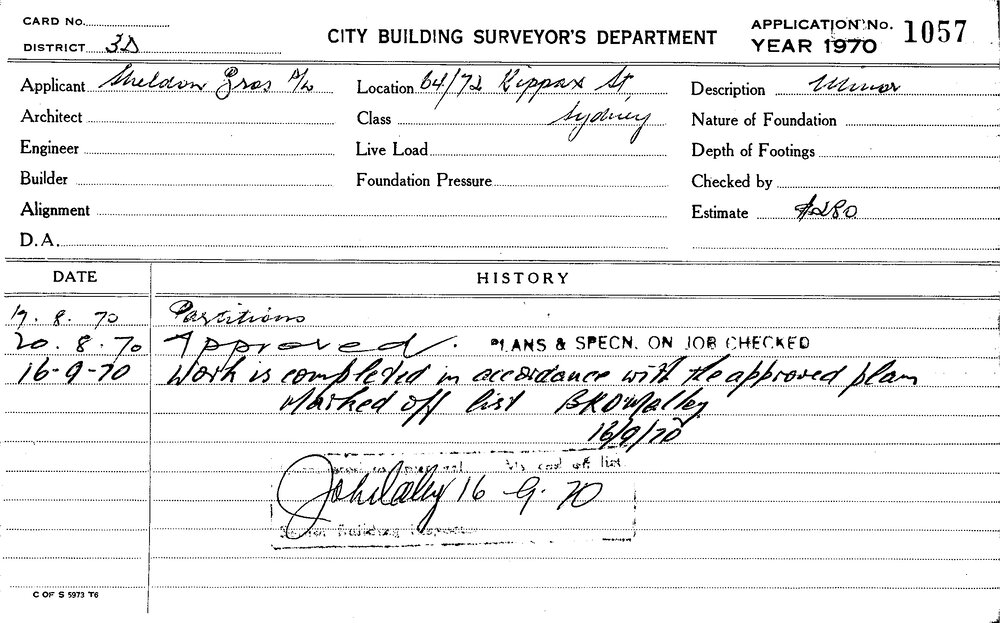 CARD No.
DISTRICT 3D
CITY BUILDING SURVEYOR'S DEPARTMENT
APPLICATION No. 1057
YEAR 1970
Applicant Sheldon Bros P/L
Location 64/72 Kippax St
Description Minor
Architect
Class Sydney
Nature of Foundation
Engineer
Live Load
Depth of Footings
Builder
Foundation Pressure
Checked by
Alignment
Estimate $280
D.A.
DATE HISTORY
19. 8. 70 Partitions
20. 8. 70 Approved. PLANS & SPECN. ON JOB CHECKED
16-9-70 Work is completed in accordance with the approved plan
Marked off list BKO'Malley
16/9/70
off list
16 9. 70
Building
C OF S 5973 T6